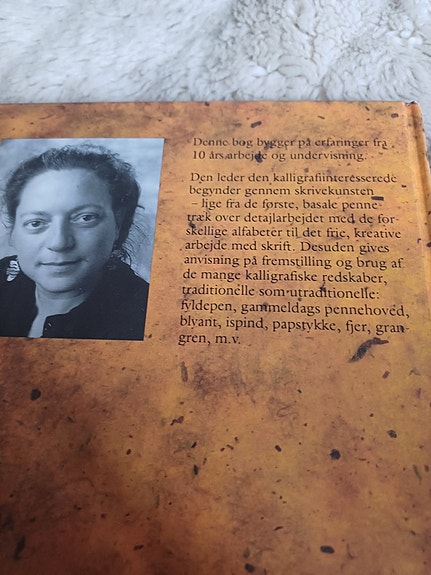 Denne bog bygger på erfaringer fra
10 års arbejde og undervisning.
Den leder den kalligrafiinteresserede
begynder gennem skrivekunsten
– lige fra de første, basale penne-
træk over detajlarbejdet med de for-
skellige alfabeter til det frie, kreative
arbejde med skrift. Desuden gives
anvisning på fremstilling og brug af
de mange kalligrafiske redskaber,
traditionelle som utraditionelle:
fyldepen, gammeldags pennehoved,
blyant, ispind, papstykke, fjer, gran-
gren, m.v.